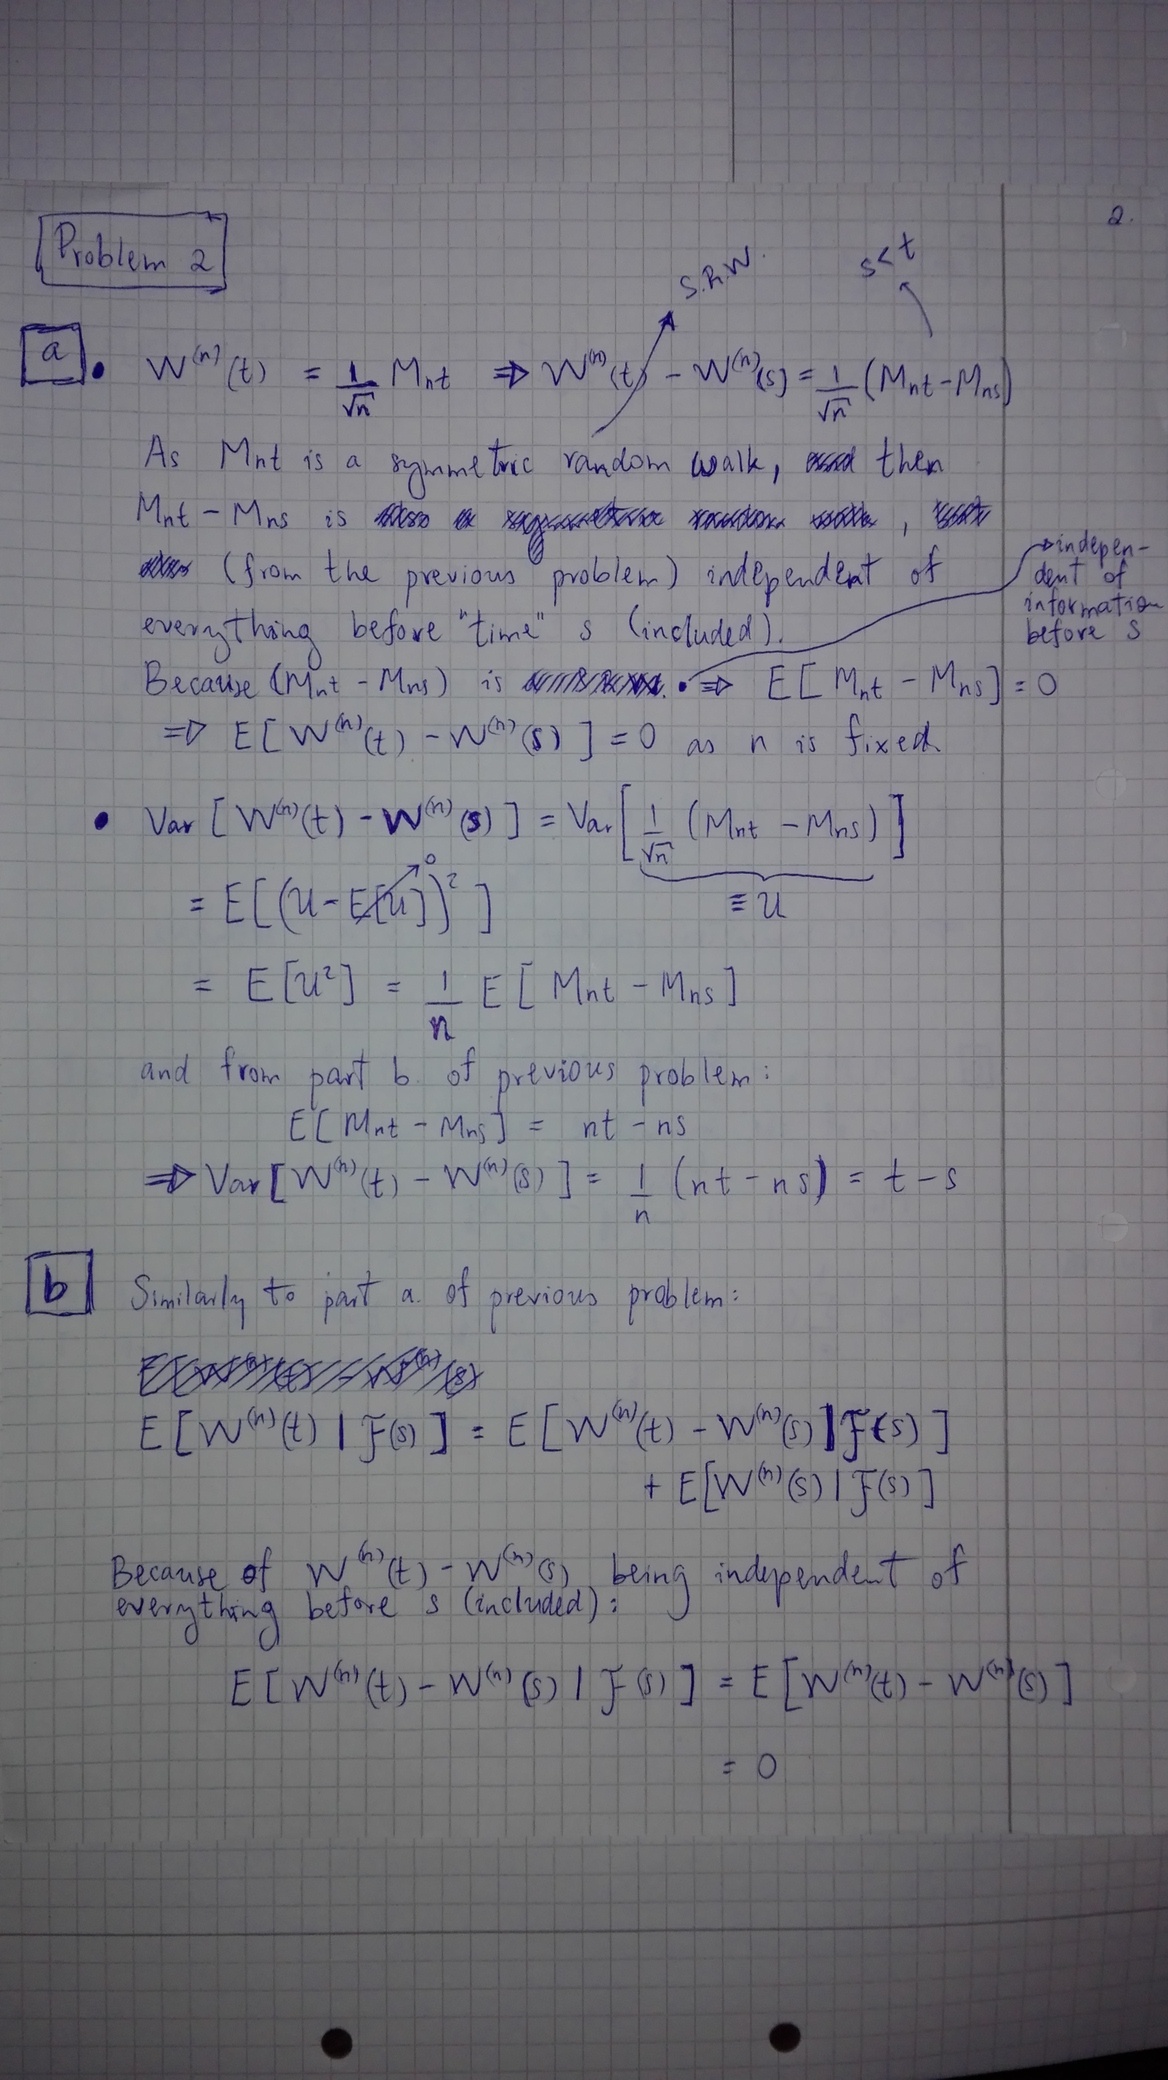 2.
Problem 2
S.R.W.
s<t
a
• W⁽ⁿ⁾(t) = 1/√n Mnt ⇒ W⁽ⁿ⁾(t) - W⁽ⁿ⁾(s) = 1/√n (Mnt - Mns)
As Mnt is a symmetric random walk, then
Mnt - Mns is ,
(from the previous problem) independent of
everything before "time" s (included).
indepen-
dent of
information
before s
Because (Mnt - Mns) is • ⇒ E[Mnt - Mns] = 0
⇒ E[W⁽ⁿ⁾(t) - W⁽ⁿ⁾(s)] = 0 as n is fixed
• Var[W⁽ⁿ⁾(t) - W⁽ⁿ⁾(s)] = Var[1/√n (Mnt - Mns)]
≡ U
= E[(U - E[U])²]
0
= E[U²] = 1/n E[Mnt - Mns]
and from part b. of previous problem:
E[Mnt - Mns] = nt - ns
⇒ Var[W⁽ⁿ⁾(t) - W⁽ⁿ⁾(s)] = 1/n (nt - ns) = t - s
b
Similarly to part a. of previous problem:
E[W⁽ⁿ⁾(t) | F(s)] = E[W⁽ⁿ⁾(t) - W⁽ⁿ⁾(s) | F(s)]
+ E[W⁽ⁿ⁾(s) | F(s)]
Because of W⁽ⁿ⁾(t) - W⁽ⁿ⁾(s) being independent of
everything before s (included):
E[W⁽ⁿ⁾(t) - W⁽ⁿ⁾(s) | F(s)] = E[W⁽ⁿ⁾(t) - W⁽ⁿ⁾(s)]
= 0